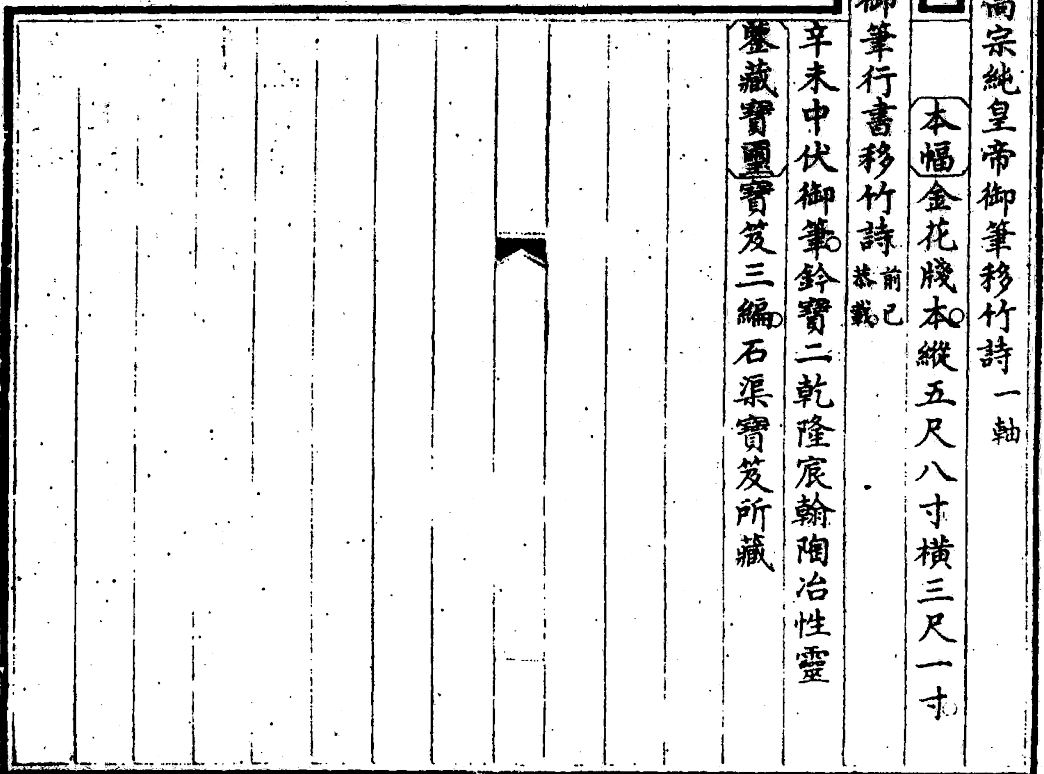 高宗純皇帝御筆移竹詩一軸
本幅金花牋本縱五尺八寸橫三尺一寸
御筆行書移竹詩前已恭載
辛未中伏御筆鈐寶二乾隆宸翰陶冶性靈
鑒藏寶璽寶笈三編石渠寶笈所藏